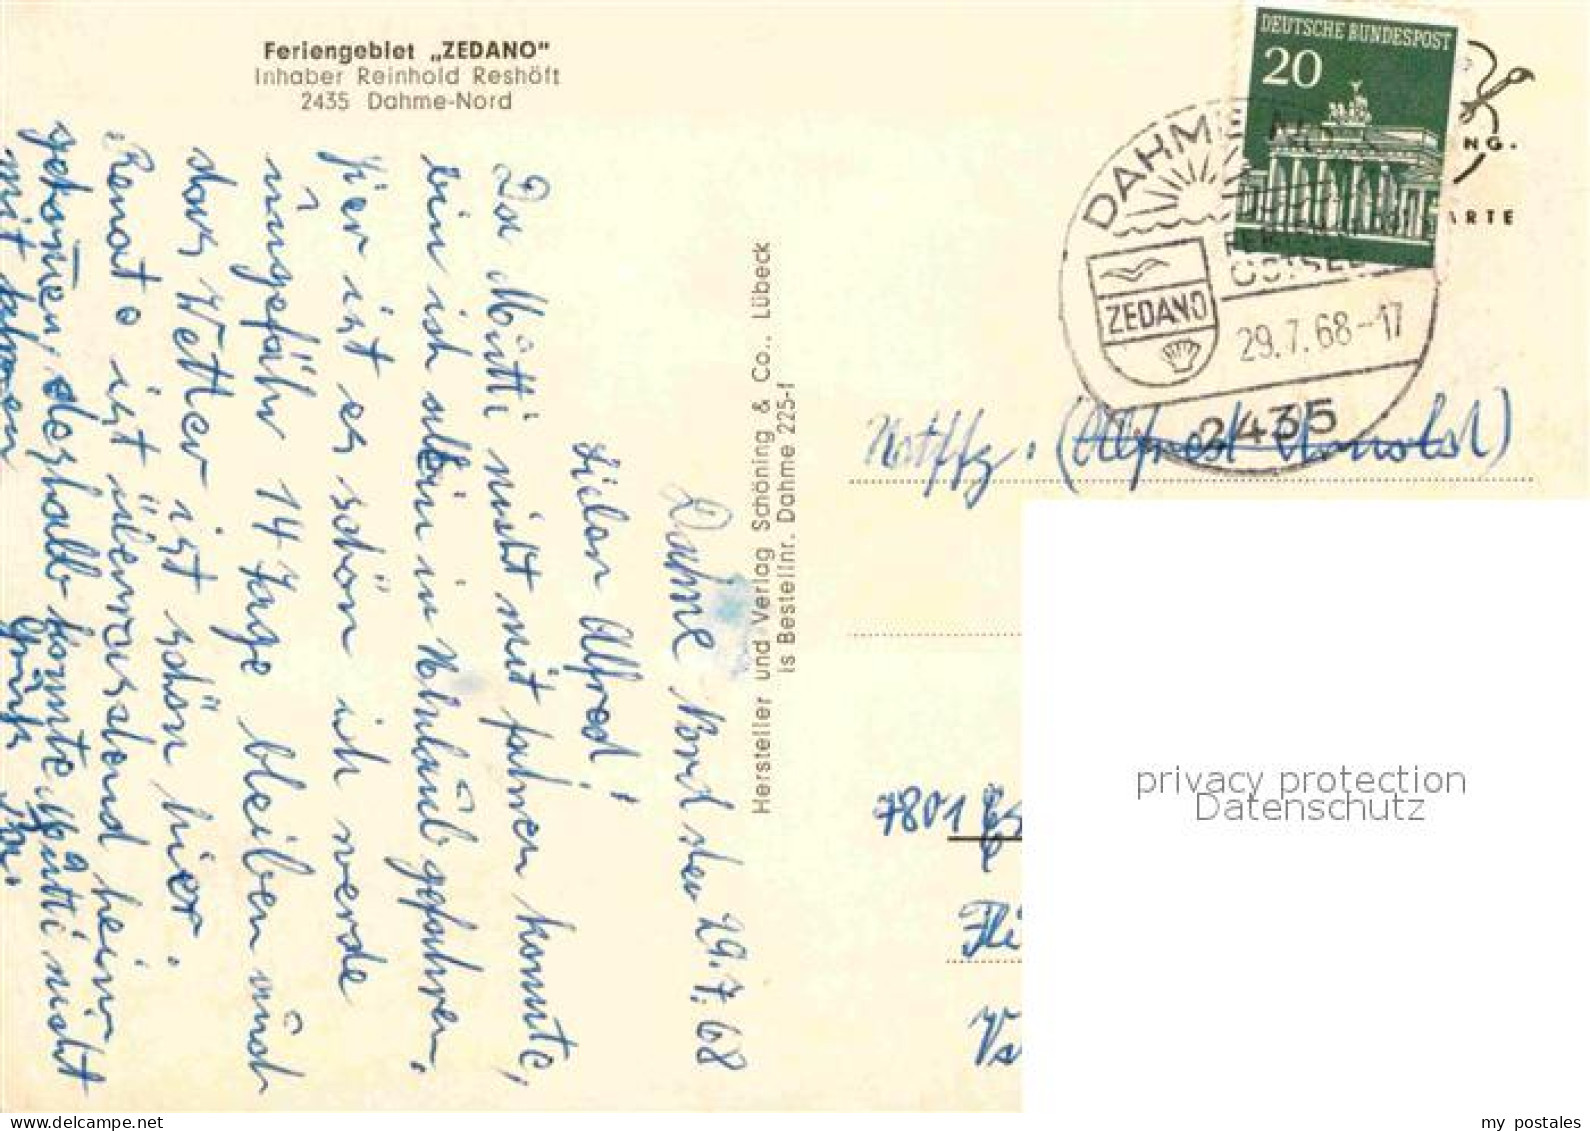 Feriengebiet „ZEDANO"
Inhaber Reinhold Reshöft
2435 Dahme-Nord
Dahme Nord den 29.7.68
Lieber Alfred!
Da Mutti nicht mit fahren konnte,
bin ich allein in Urlaub gefahren.
Hier ist es schön ich werde
ungefähr 14 Tage bleiben und
das Wetter ist schön hier.
Renate ist überraschend heim
gekommen, deshalb konnte Mutti nicht
mit fahren
Gruß
Hersteller und Verlag Schöning & Co., Lübeck
is Bestellnr. Dahme 225-f
DEUTSCHE BUNDESPOST
20
NG.
ARTE
DAHME
OSTSEE
ZEDANO
29.7.68-17
2435
(Alfred Arnold)
7801
privacy protection
Datenschutz
my postales